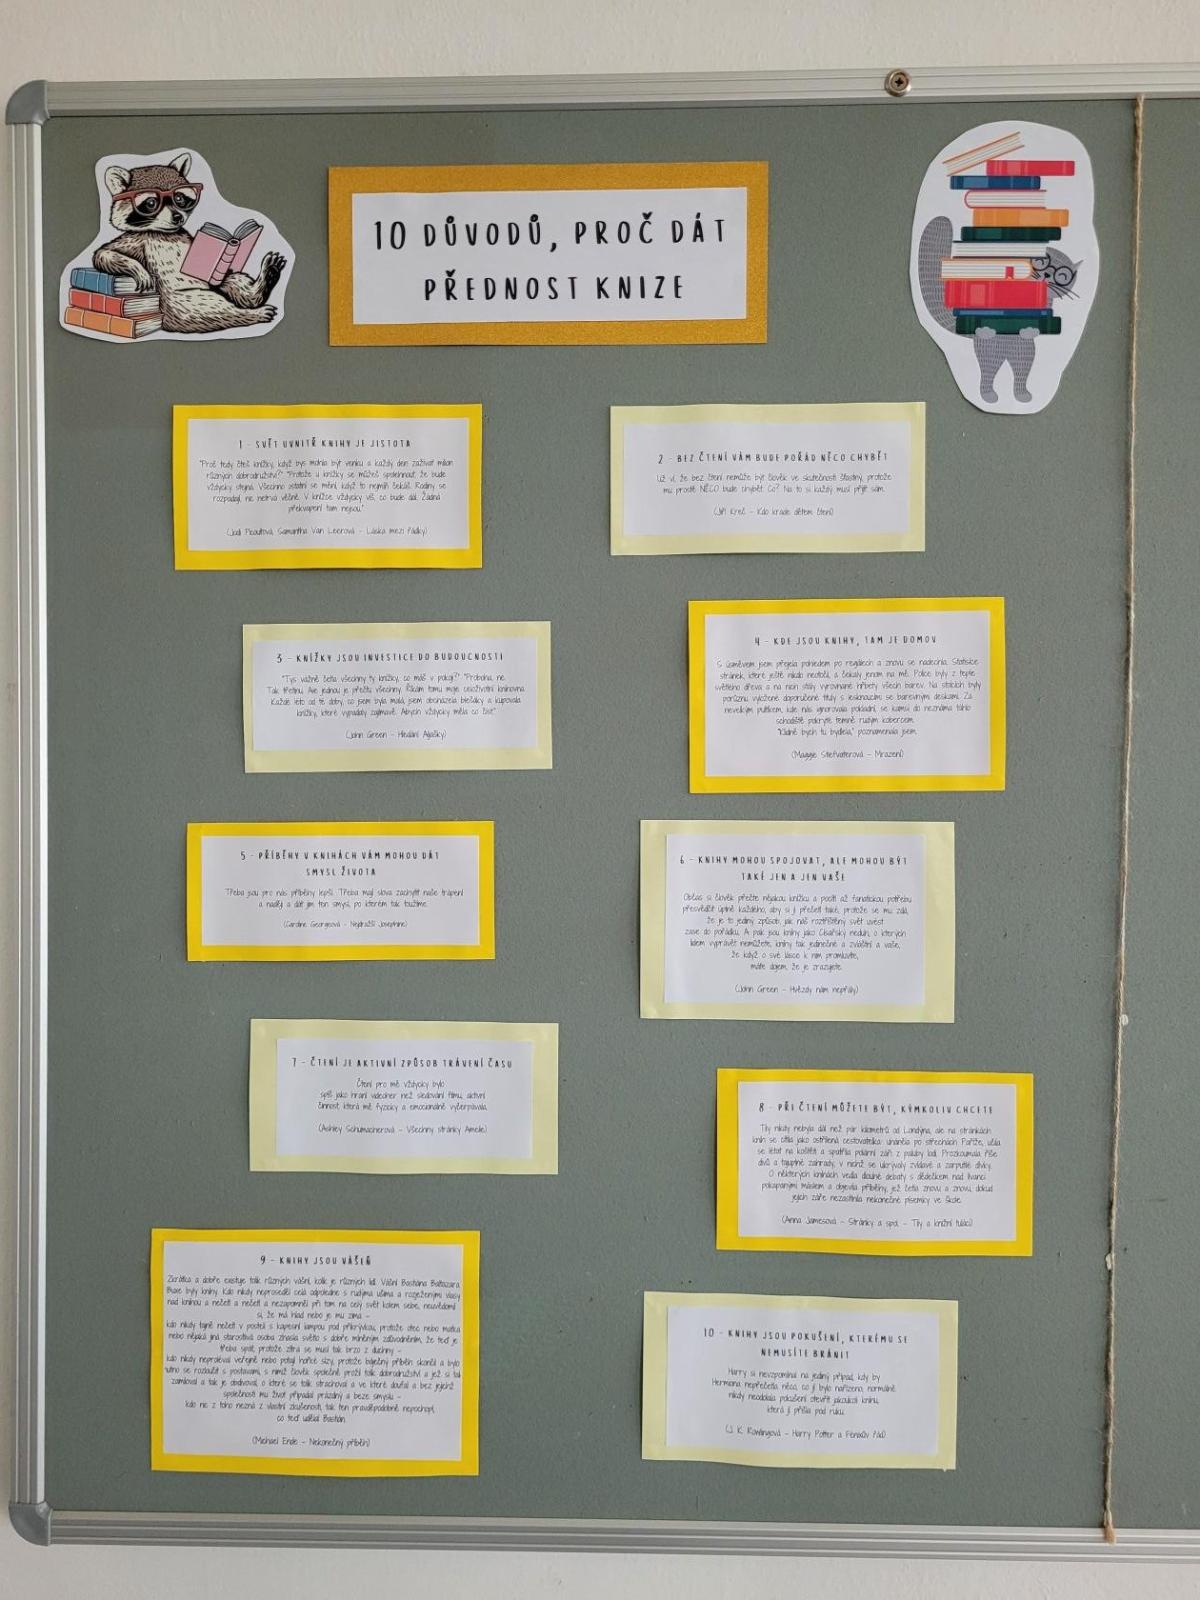 10 DŮVODŮ, PROČ DÁT
PŘEDNOST KNIZE
1 - SVĚT UVNITŘ KNIHY JE JISTOTA
"Proč tedy čteš knížky, když bys mohla být venku a každý den zažívat milion
různých dobrodružství?" "Protože u knížky se můžeš spolehnout, že bude
vždycky stejná. Všechno ostatní se mění, když to nejmíň čekáš. Rodiny se
rozpadají, nic netrvá věčně. V knížce vždycky víš, co bude dál. Žádná
překvapení tam nejsou."
(Jodi Picoultová, Samantha Van Leerová - Láska mezi řádky)
2 - BEZ ČTENÍ VÁM BUDE POŘÁD NĚCO CHYBĚT
Už ví, že bez čtení nemůže být člověk ve skutečnosti šťastný, protože
mu prostě NĚCO bude chybět. Co? Na to si každý musí přijít sám.
(Jiří Kreč - Kdo krade dětem čtení)
3 - KNÍŽKY JSOU INVESTICE DO BUDOUCNOSTI
"Tys vážně četla všechny ty knížky, co máš v pokoji?" "Proboha, ne.
Tak třetinu. Ale jednou je přečtu všechny. Říkám tomu moje celoživotní knihovna.
Každé léto od té doby, co jsem byla malá, jsem obcházela blešáky a kupovala
knížky, které vypadaly zajímavě. Abych vždycky měla co číst."
(John Green - Hledání Aljašky)
4 - KDE JSOU KNIHY, TAM JE DOMOV
S úsměvem jsem přejela pohledem po regálech a znovu se nadechla. Statisíce
stránek, které ještě nikdo neotočil, a čekaly jenom na mě. Police byly z teple
světlého dřeva a na nich stály vyrovnané hřbety všech barev. Na stolcích byly
porůznu vyložené doporučené tituly s lesknoucími se barevnými deskami. Za
nevelkým pultíkem, kde nás ignorovala pokladní, se kamsi do neznáma táhlo
schodiště pokryté temně rudým kobercem.
"Klidně bych tu bydlela," poznamenala jsem.
(Maggie Stiefvaterová - Mrazení)
5 - PŘÍBĚHY V KNIHÁCH VÁM MOHOU DÁT
SMYSL ŽIVOTA
Třeba jsou pro nás příběhy lepší. Třeba mají slova zachytit naše trápení
a naději a dát jim ten smysl, po kterém tak toužíme.
(Caroline Georgeová - Nejdražší Josephine)
6 - KNIHY MOHOU SPOJOVAT, ALE MOHOU BÝT
TAKÉ JEN A JEN VAŠE
Občas si člověk přečte nějakou knížku a pocítí až fanatickou potřebu
přesvědčit úplně každého, aby si ji přečetl také, protože se mu zdá,
že je to jediný způsob, jak náš roztříštěný svět uvést
zase do pořádku. A pak jsou knihy jako Císařský neduh, o kterých
lidem vyprávět nemůžete, knihy tak jedinečné a zvláštní a vaše,
že když o své lásce k nim promluvíte,
máte dojem, že je zrazujete.
(John Green - Hvězdy nám nepřály)
7 - ČTENÍ JE AKTIVNÍ ZPŮSOB TRÁVENÍ ČASU
Čtení pro mě vždycky bylo
spíš jako hraní videoher než sledování filmu, aktivní
činnost, která mě fyzicky a emocionálně vyčerpávala.
(Ashley Schumacherová - Všechny stránky Amelie)
8 - PŘI ČTENÍ MŮŽETE BÝT, KÝMKOLIV CHCETE
Tily nikdy nebyla dál než pár kilometrů od Londýna, ale na stránkách
knih se cítila jako ostřílená cestovatelka: uháněla po střechách Paříže, učila
se létat na koštěti a spatřila polární zář z paluby lodi. Prozkoumala říše
divů a tajuplné zahrady, v nichž se ukrývaly zvídavé a zarputilé dívky.
O některých knihách vedla dlouhé debaty s dědečkem nad lívanci
pokapanými máslem a objevila příběhy, jež četla znovu a znovu, dokud
jejich záře nezastínila nekonečné písemky ve škole.
(Anna Jamesová - Stránky a spol. - Tily a knižní tuláci)
9 - KNIHY JSOU VÁŠEŇ
Zkrátka a dobře existuje tolik různých vášní, kolik je různých lidí. Vášní Bastiána Baltazara
Buxe byly knihy. Kdo nikdy neproseděl celá odpoledne s rudýma ušima a rozježenými vlasy
nad knihou a nečetl a nečetl a nezapomněl při tom na celý svět kolem sebe, neuvědomil
si, že má hlad nebo je mu zima -
kdo nikdy tajně nečetl v posteli s kapesní lampou pod přikrývkou, protože otec nebo matka
nebo nějaká jiná starostlivá osoba zhasla světlo s dobře míněným zdůvodněním, že teď je
třeba spát, protože zítra se musí tak brzo z duchny -
kdo nikdy neproléval veřejně nebo potají hořké slzy, protože báječný příběh skončil a bylo
nutno se rozloučit s postavami, s nimiž člověk společně prožil tolik dobrodružství a jež si tak
zamiloval a tak je obdivoval, o které se tolik strachoval a ve které doufal a bez jejichž
společnosti mu život připadal prázdný a beze smyslu -
kdo nic z toho nezná z vlastní zkušenosti, tak ten pravděpodobně nepochopí,
co teď udělal Bastián.
(Michael Ende - Nekonečný příběh)
10 - KNIHY JSOU POKUŠENÍ, KTERÉMU SE
NEMUSÍTE BRÁNIT
Harry si nevzpomínal na jediný případ, kdy by
Hermiona nepřečetla něco, co jí bylo nařízeno, normálně
nikdy neodolala pokušení otevřít jakoukoli knihu,
která jí přišla pod ruku.
(J. K. Rowlingová - Harry Potter a Fénixův řád)